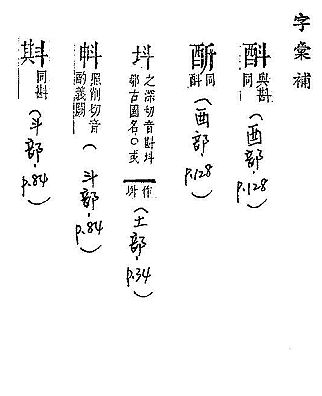 字彙補
酙 與斟同 (酉部·p.128)
同酙 (酉部·p.128)
之深切音斟鄩古國名○或作 (土部·p.34)
照削切音酌義闕 (斗部·p.84)
同斟 (斗部·p.84)